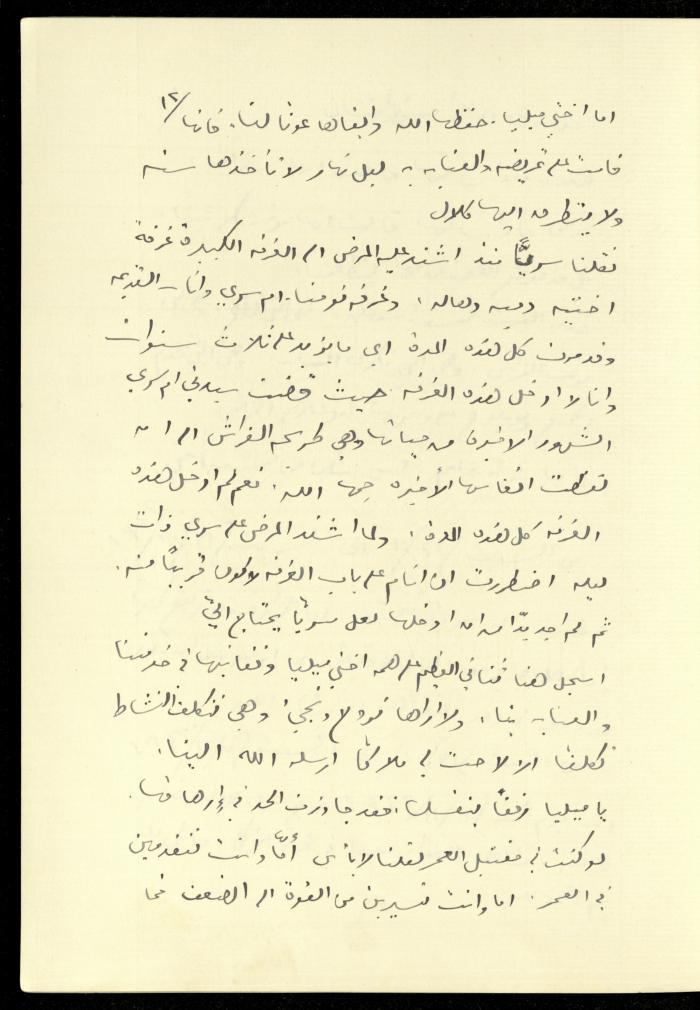 ١٢/
اما اختي ميليا. حفظها الله وابقاها عونا لنا. فانها
قامت على تمريضه والعنايه به ليل نهار لا تأخذها سنه
ولا يتطرق اليها كلال
نقلنا سريًّا منذ اشتد عليه المرض الى الغرفه الكبيرة غرفة
اختيه دميه وهاله، وغرفه نومنا. ام سري وانا - القديمه
وقد مرت كل هذه المدة اي ما يزيد على ثلاث سنوات
وانا لا ادخل هذه الغرفه حيث قضت سيدتي ام سري
الشهور الاخيرة من حياتها وهي طريحة الفراش الى ان
لفظت انفاسها الأخيره رحمها الله. نعم لم ادخل هذه
الغرفه كل هذه المدة. ولما اشتد المرض على سري ذات
ليله اضطررت ان انام على باب الغرفه لاكون قريبًا منه.
ثم لم اجد بدّا من ان ادخلها لعل سريّا يحتاج اليّ
اسجل هنا ثنائي العظيم على همه اختي ميليا وتفانيها في خدمتنا
والعنايه بنا. ولا اراها تروح وتجيء وهي تتكلف النشاط
تكلفا الا لاحت لي ملاكًا ارسله الله الينا.
يا ميليا رفقًا بنفسك، فقد جاوزت الحد في إرهاقها.
لو كنت في مقتبل العمر لقلنا لا بأس أمّا وانت تتقدمين
في العمر. اما وانت تسيرين من القوة الى الضعف فما